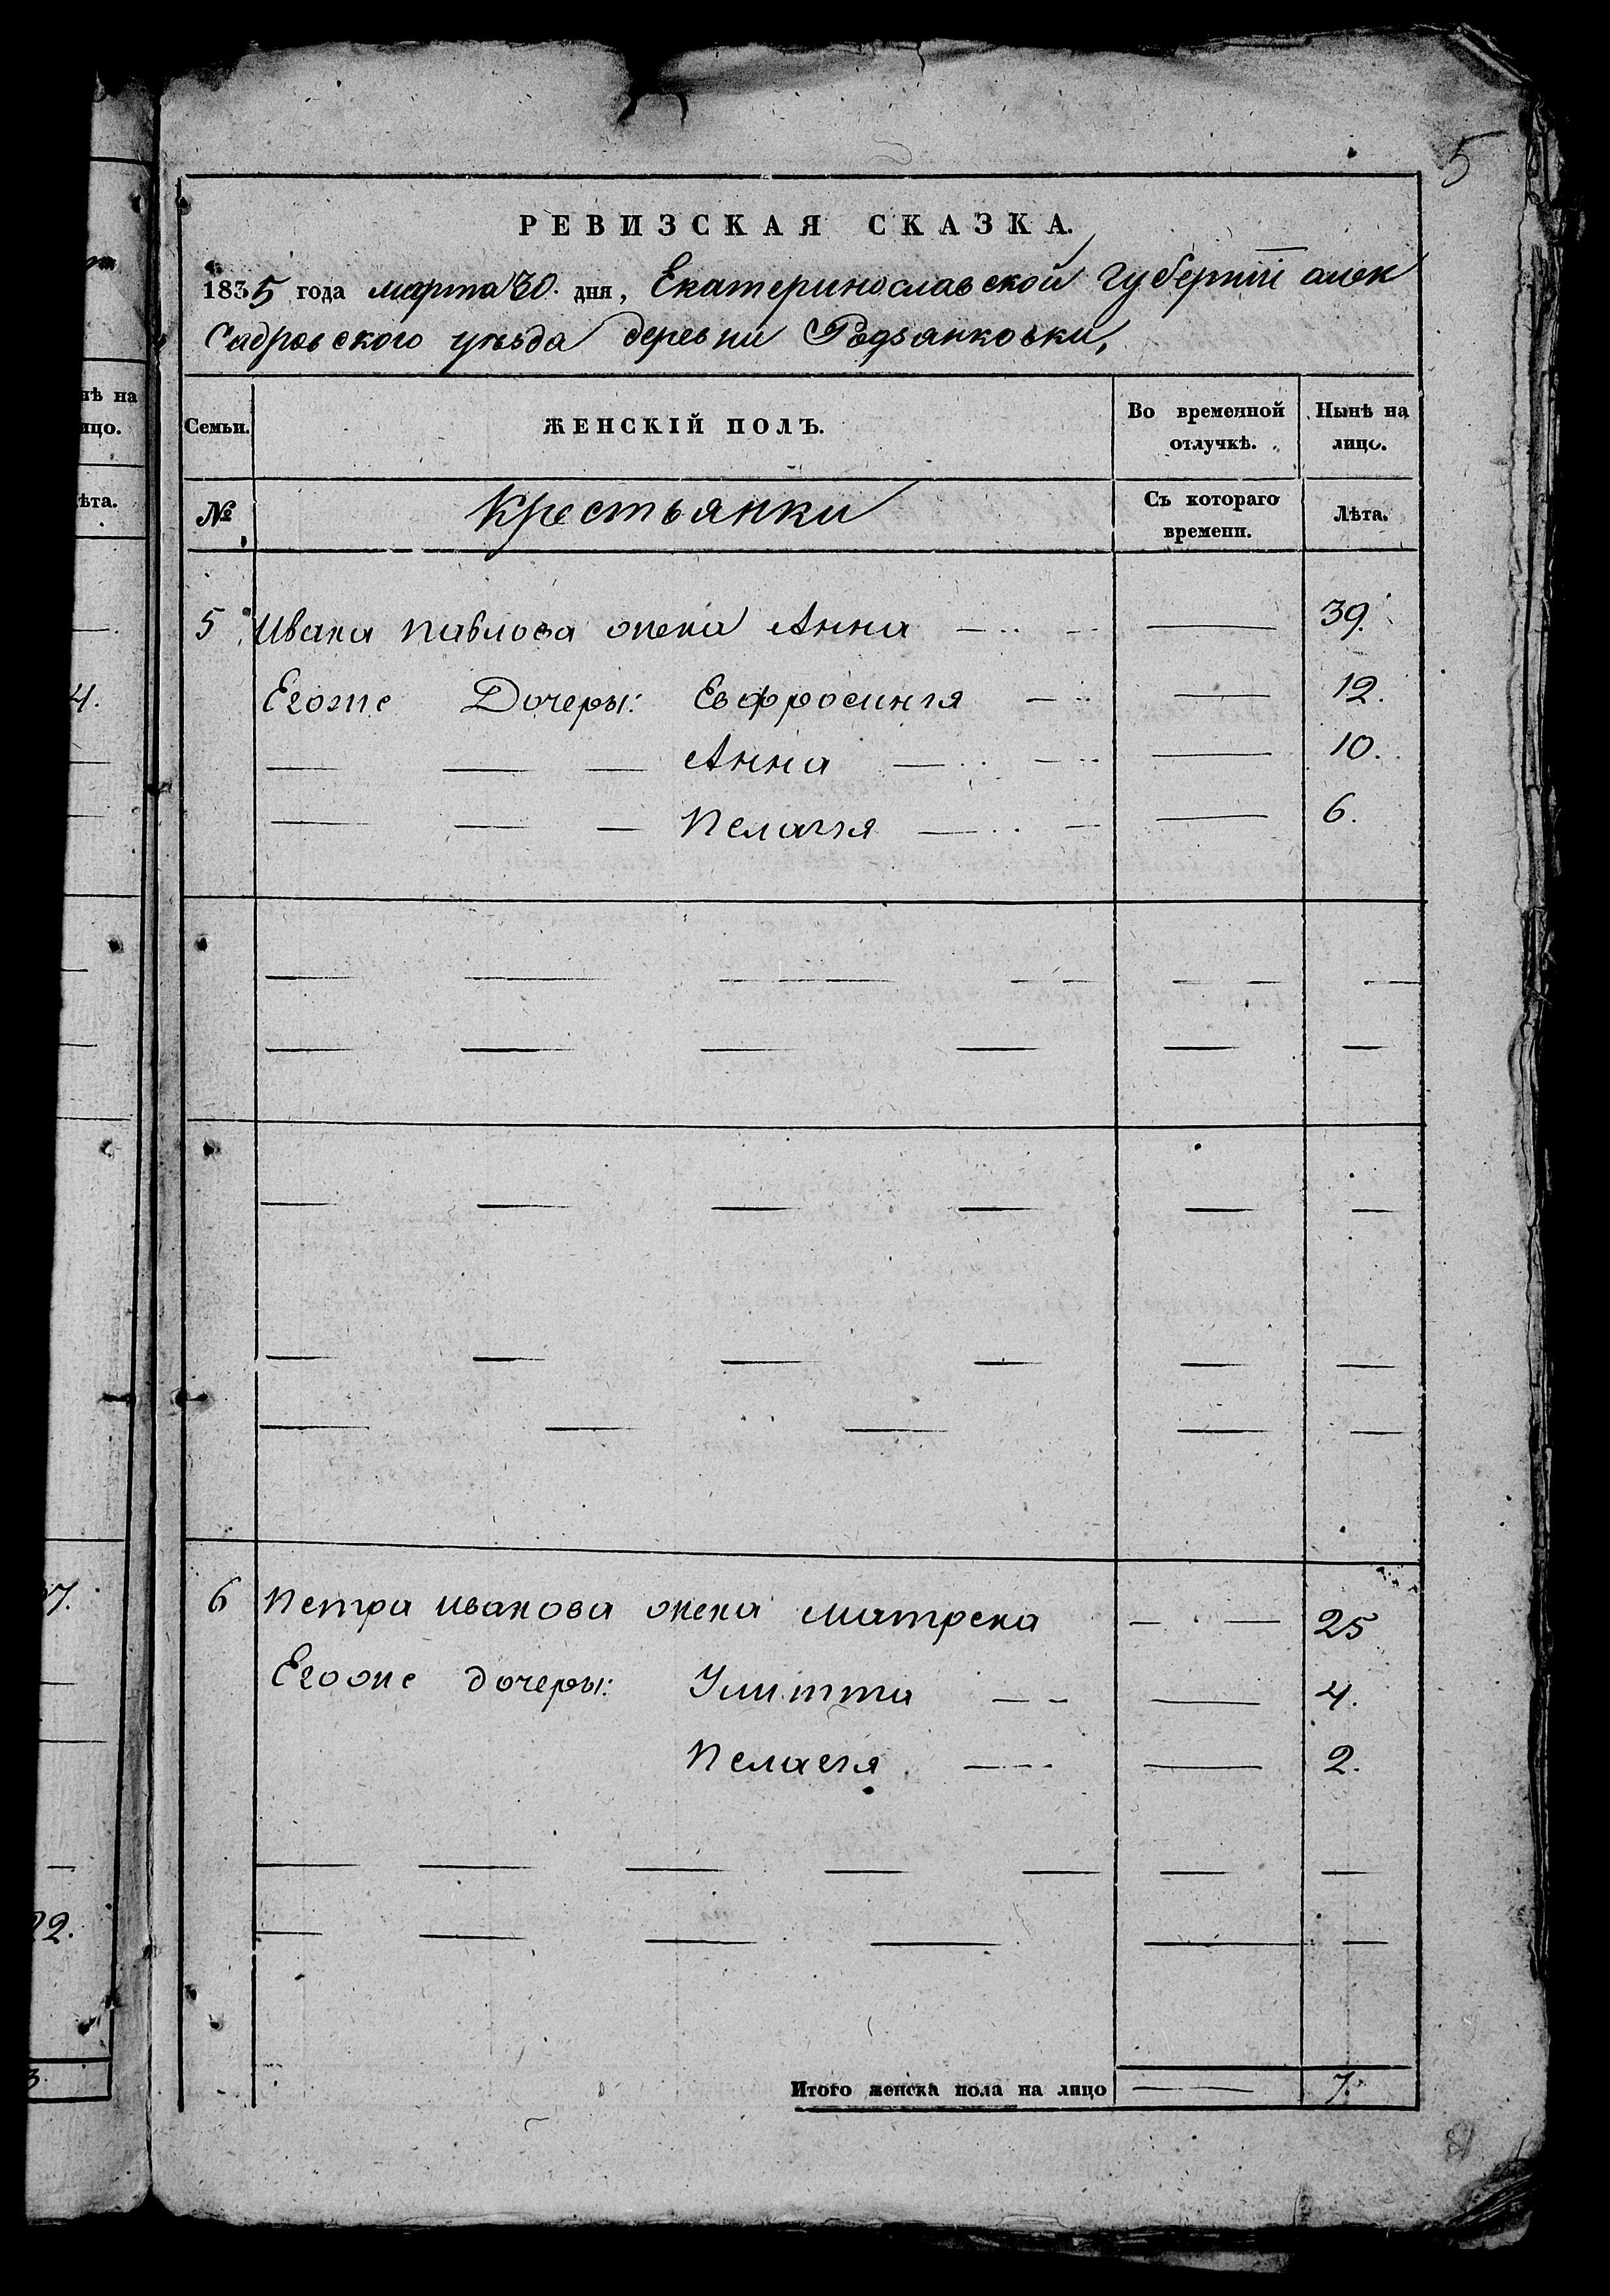 5
РЕВИЗСКАЯ СКАЗКА.
1835 года марта 30. дня, Екатеринославской Губернии алек
садровского уезда деревни Родзянковки,
Семьи. ЖЕНСКІЙ ПОЛЪ. Во временной отлучкѣ. Нынѣ на лицо.
№ Крестьянки Съ котораго времени. Лѣта.
5 Ивана павлова жена Анна 39.
Егоже Дочеры: Евфросиния 12.
Анна 10.
Пелагия 6.
6 Петра иванова жена матрена 25
Егоже дочеры: Улитта 4.
Пелагия 2.
Итого женска пола на лицо 7.
нѣ на
ицо.
ѣта.
4.
7.
22.
3.